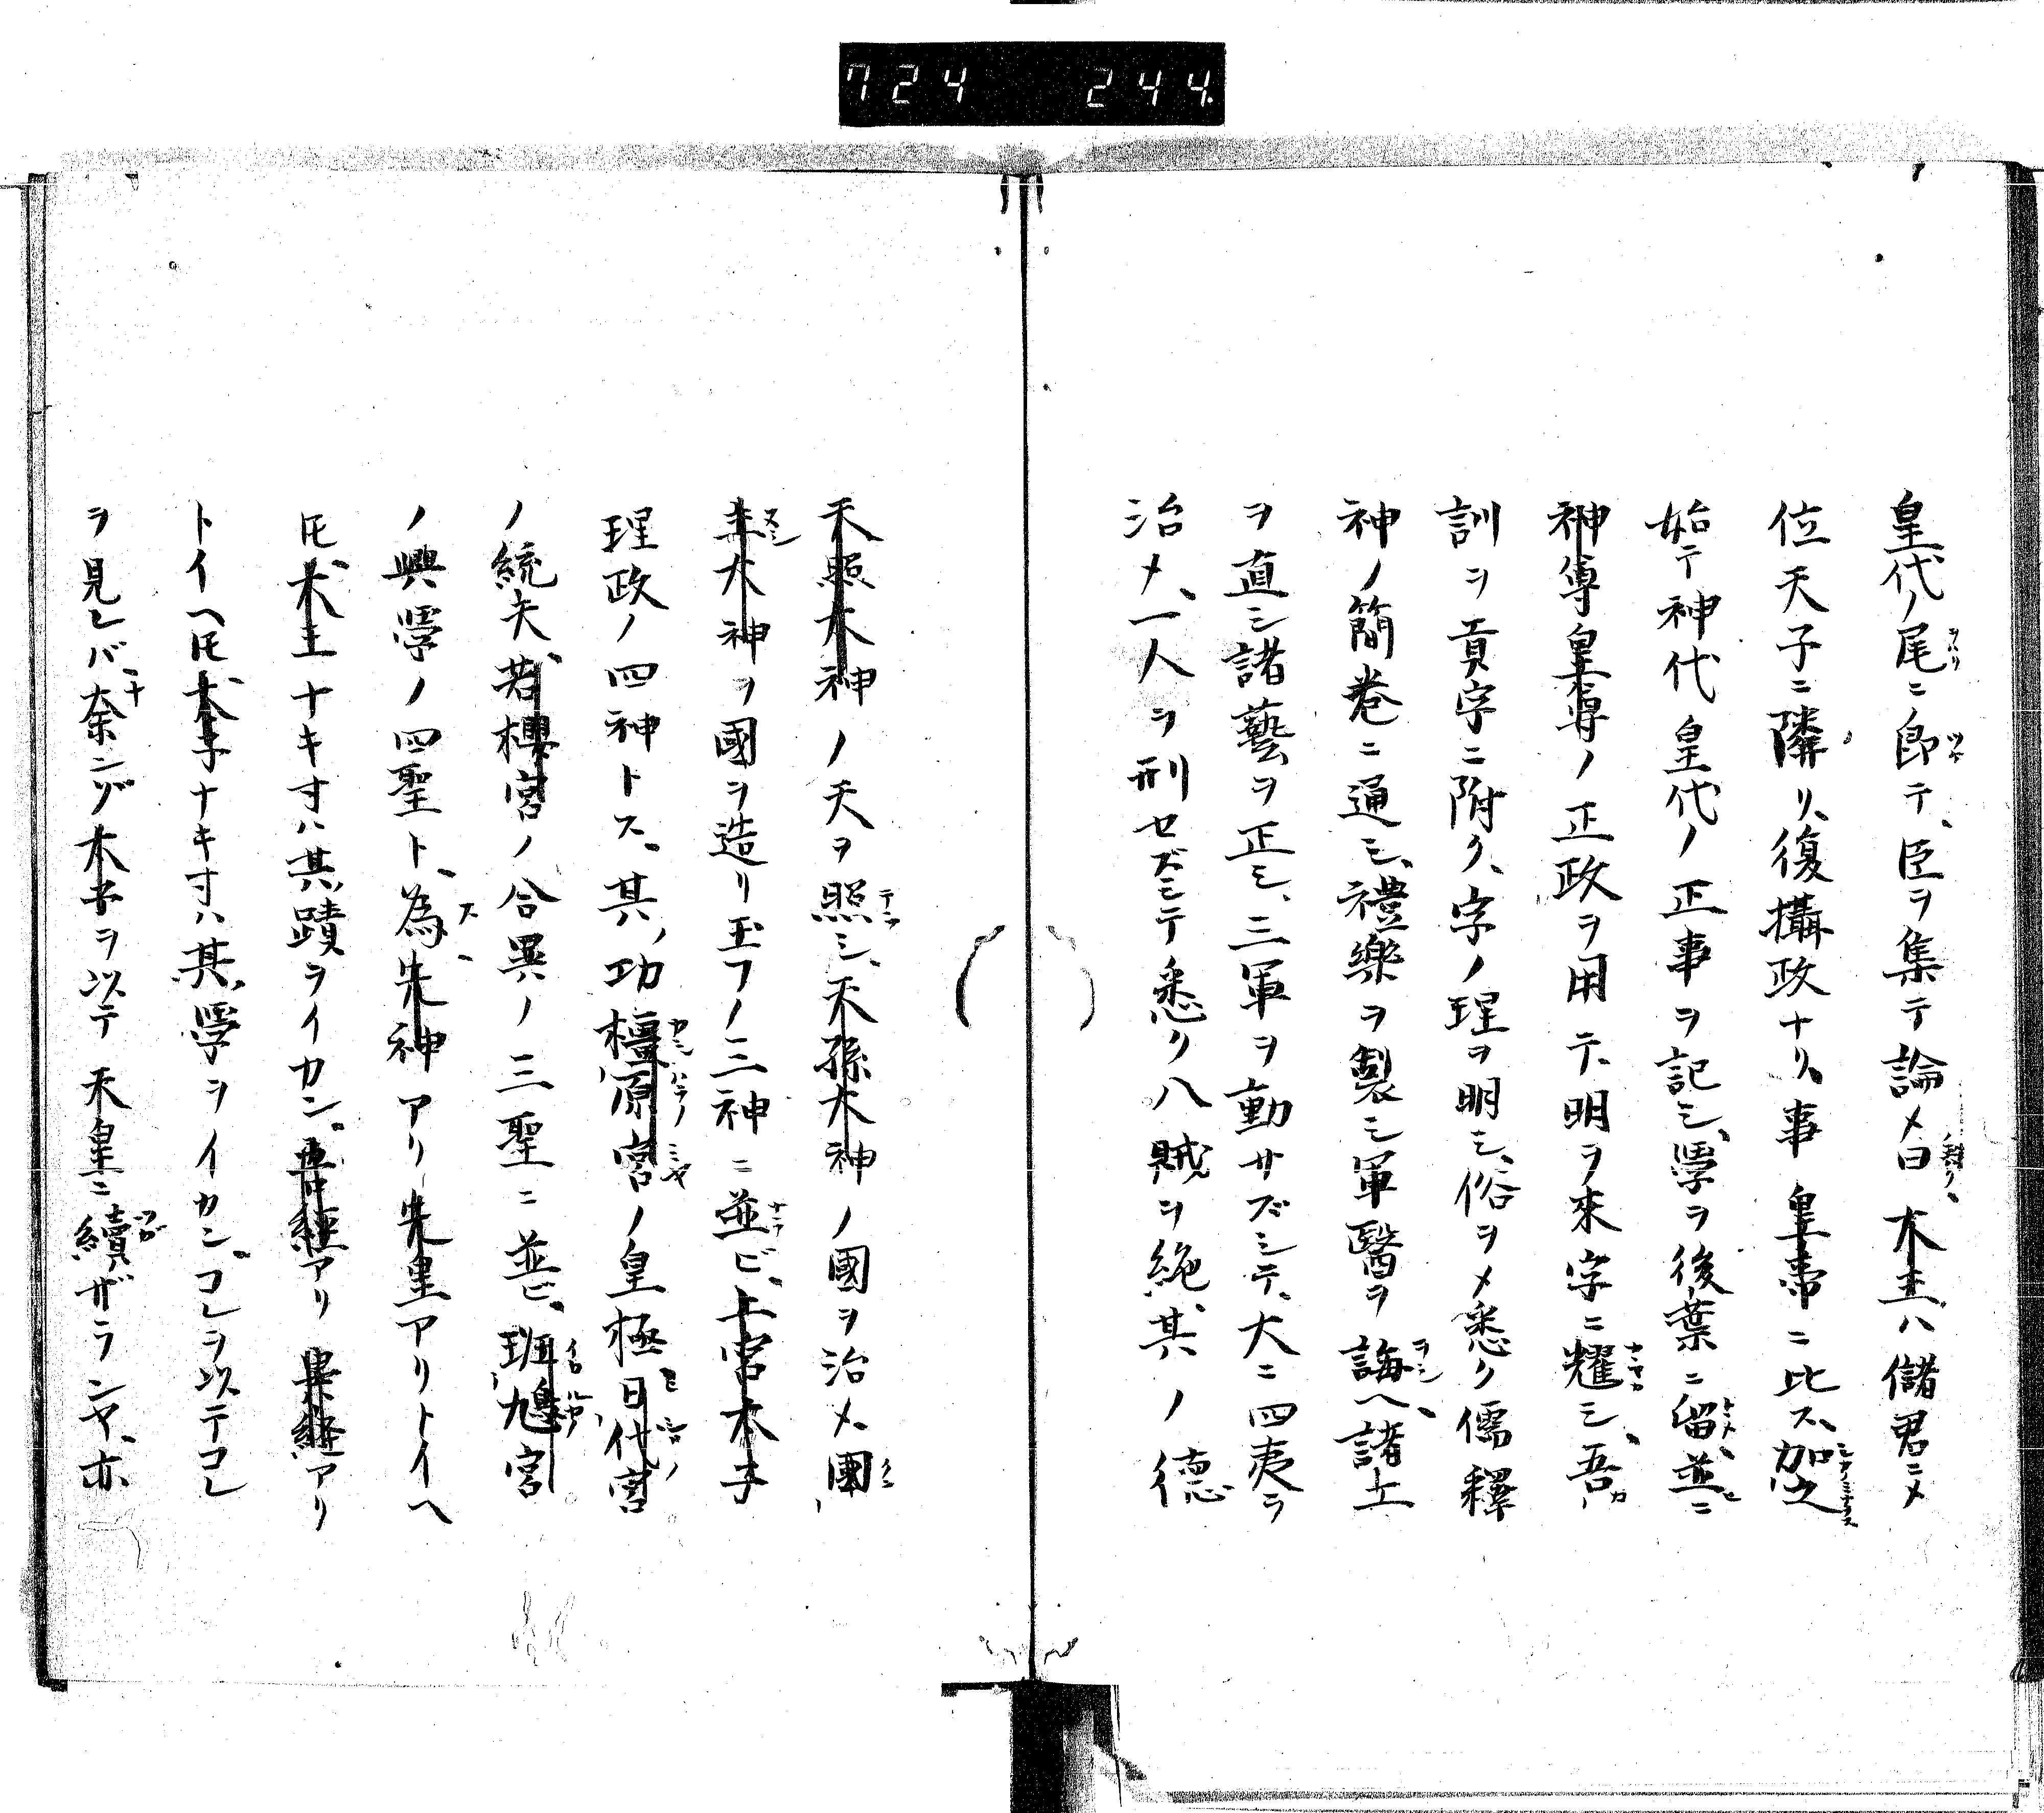 724 244
皇代ノ尾ニ即テ、臣ヲ集テ論メ曰太王ハ儲君ニメ
位天子ニ隣リ、復攝政ナリ、事皇帝ニ比ス、加之
始テ神代皇代ノ正事ヲ記シ、學ヲ後葉ニ留、並ニ
神尊皇尊ノ正政ヲ用テ、明ヲ來字ニ耀シ、吾
訓ヲ貢字ニ附ク、字ノ理ヲ明シ、俗ヲメ悉ク儒釋
神ノ簡巻ニ通シ、禮樂ヲ製シ軍醫ヲ誨ヘ、諸土
ヲ直シ諸藝ヲ正シ、三軍ヲ動サズシテ、大ニ四夷ヲ
治メ、一人ヲ刑セズシテ悉ク八賊ヲ絶、其ノ德
天照太神ノ天ヲ照シ、天孫太神ノ國ヲ治メ、國
主太神ヲ國ヲ造リ玉フノ三神ニ並ビ、上宮太子
理政ノ四神トス、其ノ功橿原宮ノ皇極日代宮
ノ統矢、若櫻宮ノ合異ノ三聖ニ並ビ、斑鳩宮
ノ興學ノ四聖ト、為ス、先神アリ先皇アリトイヘ
𪜈太王ナキ寸ハ其蹟ヲイカン。吾經アリ異經アリ
トイヘ𪜈太子ナキ寸ハ其學ヲイカン。コレヲ以テコレ
ヲ見レバ奈ンゾ太子ヲ以テ天皇ニ續ザランヤ、亦